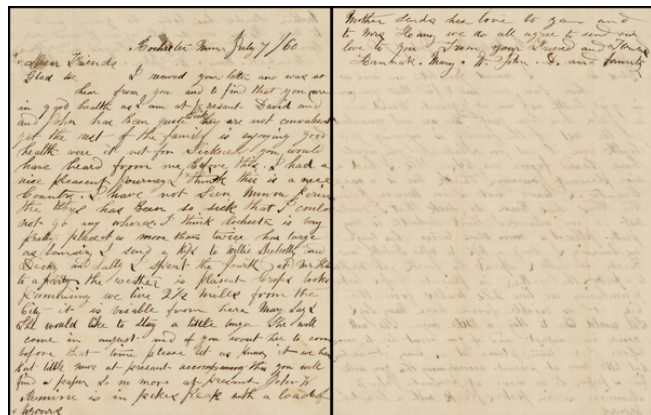 Rochester Minn July 7/60
Dear Friends
I received your letter and was so
Glad to hear from you and to find that you are
in good health as I am at present David and
and John has been quite sick they are not
yet the rest of the family is enjoying good
health were it not for Sickness you would
have heard from me before this. I had a
nice pleasent Journey I think this is a nice
Country. I have not seen
the Boys has been so sick that I could
not go any where. I think Rochester is very
pretty place is more than twice has large
as I send a Kiss to Willie and
Dick and Sally I spent the fourth at
to a party the wether is plesent Crops looks
we live 2½ miles from the
City it is visable from here Mary Says
She would like to Stay a little longer She will
come in august and if you want her to come
before that time please let us know it we have
but little news at presant accompanying this you will
find a paper So no more at presant John W
is in pikes peak with a load of
Mother sends her love to you and
to Mrs we do all agree to send our
love to you From your Friend and
Hannah. Mary. W. John. D. and family